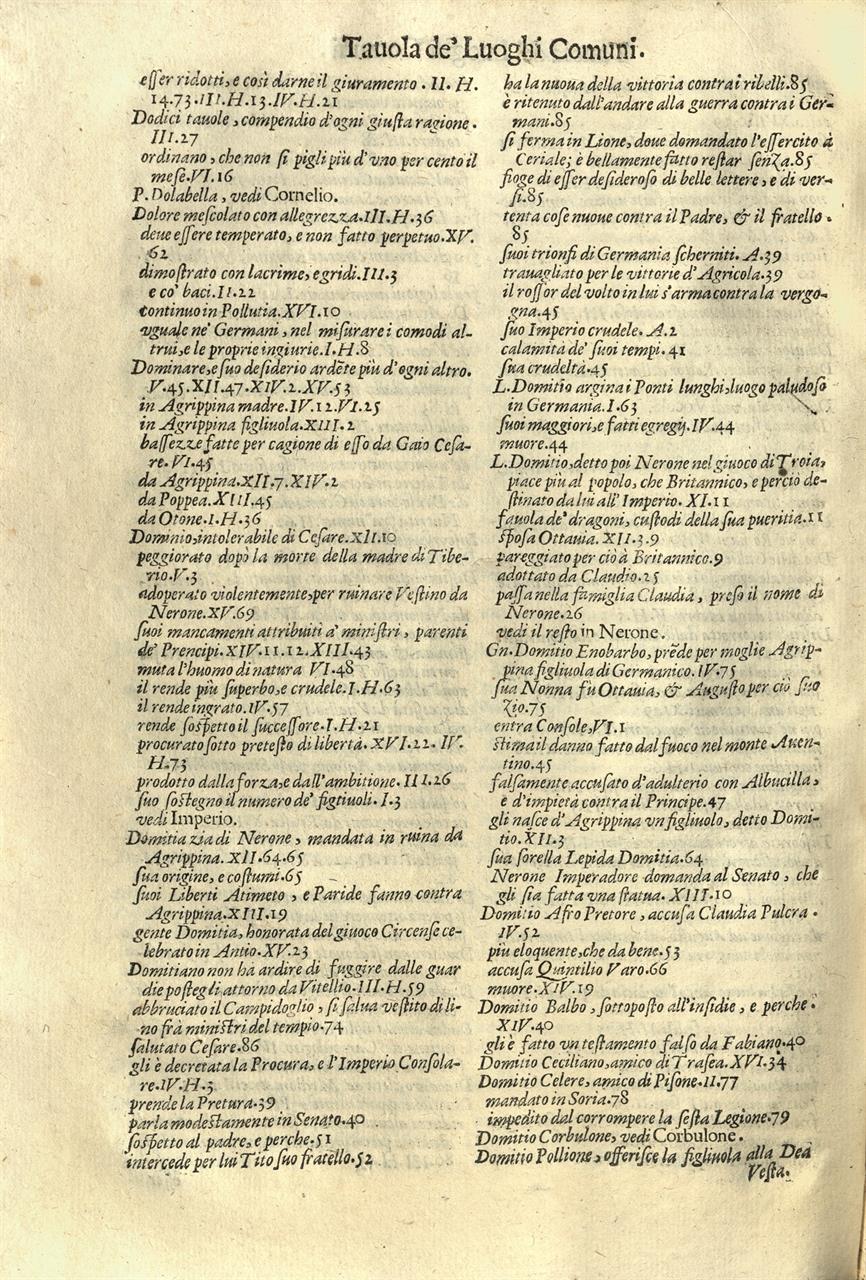 Tauola de' Luoghi Comuni.
esser ridotti, e così darne il giuramento. II. H.
14.73.III.H.13.IV.H.21
Dodici tauole, compendio d'ogni giusta ragione.
III.27
ordinano, che non si pigli più d'vno per cento il
mese.VI.16
P. Dolabella, vedi Cornelio.
Dolore mescolato con allegrezza.III.H.36
deue essere temperato, e non fatto perpetuo.XV.
62
dimostrato con lacrime, e gridi.III.3
e co' baci.II.22
continuo in Pollutia.XVI.10
vguale ne' Germani, nel misurare i comodi al-
trui, e le proprie ingiurie.I.H.8
Dominare, e suo desiderio ardēte più d'ogni altro.
V.45.XII.47.XIV.2.XV.53
in Agrippina madre.IV.12.VI.25
in Agrippina figliuola.XIII.2
bassezze fatte per cagione di esso da Gaio Cesa-
re.VI.45
da Agrippina.XII.7.XIV.2
da Poppea.XIII.45
da Otone.I.H.36
Dominio, intolerabile di Cesare.XII.10
peggiorato dopò la morte della madre di Tibe-
rio.V.3
adoperato violentemente, per ruinare Vestino da
Nerone.XV.69
suoi mancamenti attribuiti a' ministri, parenti
de' Prencipi.XIV.11.12.XIII.43
muta l'huomo di natura VI.48
il rende più superbo, e crudele.I.H.63
il rende ingrato.IV.57
rende sospetto il successore.I.H.21
procurato sotto pretesto di libertà. XVI.22. IV.
H.73
prodotto dalla forza, e dall'ambitione. III.26
suo sostegno il numero de' figtiuoli. I.3
vedi Imperio.
Domitia zia di Nerone, mandata in ruina da
Agrippina. XII.64.65
sua origine, e costumi.65
suoi Liberti Atimeto, e Paride fanno contra
Agrippina.XIII.19
gente Domitia, honorata del giuoco Circense ce-
lebrato in Antio.XV.23
Domitiano non hà ardire di fuggire dalle guar
die postegli attorno da Vitellio.III.H.59
abbruciato il Campidoglio, si salua vestito di li-
no frà ministri del tempio.74
salutato Cesare.86
gli è decretata la Procura, e l'Imperio Consola-
re.IV.H.3
prende la Pretura.39
parla modestamente in Senato.40
sospetto al padre, e perche.51
intercede per lui Tito suo fratello.52
ha la nuoua della vittoria contra i ribelli.85
è ritenuto dall'andare alla guerra contra i Ger-
mani.85
si ferma in Lione, doue domandato l'essercito à
Ceriale; è bellamente fatto restar senza.85
fioge di esser desideroso di belle lettere, e di ver-
si.85
tenta cose nuoue contra il Padre, & il fratello.
85
suoi trionfi di Germania scherniti. A.39
trauagliato per le vittorie d'Agricola.39
il rossor del volto in lui s'arma contra la vergo-
gna.45
suo Imperio crudele. A.2
calamità de' suoi tempi.41
sua crudeltà.45
L. Domitio argina i Ponti lunghi, luogo paludoso
in Germania.I.63
suoi maggiori, e fatti egregij.IV.44
muore.44
L. Domitio, detto poi Nerone nel giuoco di Troia,
piace più al popolo, che Britannico, e perciò de-
stinato da lui all'Imperio. XI.11
fauola de' dragoni, custodi della sua pueritia.11
sposa Ottauia. XII.3.9
pareggiato per ciò à Britannico.9
adottato da Claudio.25
passa nella famiglia Claudia, preso il nome di
Nerone.26
vedi il resto in Nerone.
Gn. Domitio Enobarbo, prēde per moglie Agrip-
pina figliuola di Germanico.IV.75
sua Nonna fù Ottauia, & Augusto per ciò suo
Zio.75
entra Console, VI.1
stima il danno fatto dal fuoco nel monte Auen-
tino.45
falsamente accusato d'adulterio con Albucilla,
e d'impietà contra il Principe.47
gli nasce d'Agrippina vn figliuolo, detto Domi-
tio.XII.3
sua sorella Lepida Domitia.64
Nerone Imperadore domanda al Senato, che
gli sia fatta vna statua. XIII.10
Domitio Afro Pretore, accusa Claudia Pulcra.
IV.52
più eloquente, che da bene.53
accusa Quintilio Varo.66
muore.XIV.19
Domitio Balbo, sottoposto all'insidie, e perche.
XIV.40
gli è fatto vn testamento falso da Fabiano.40
Domitio Ceciliano, amico di Trasea.XVI.34
Domitio Celere, amico di Pisone.II.77
mandato in Soria.78
impedito dal corrompere la sesta Legione.79
Domitio Corbulone, vedi Corbulone.
Domitio Pollione, offerisce la figliuola alla Dea
Vesta.